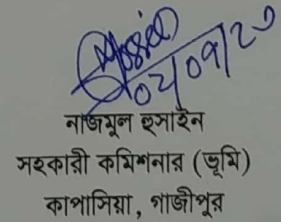 ০২/০৭/২৩
নাজমুল হুসাইন
সহকারী কমিশনার (ভূমি)
কাপাসিয়া, গাজীপুর